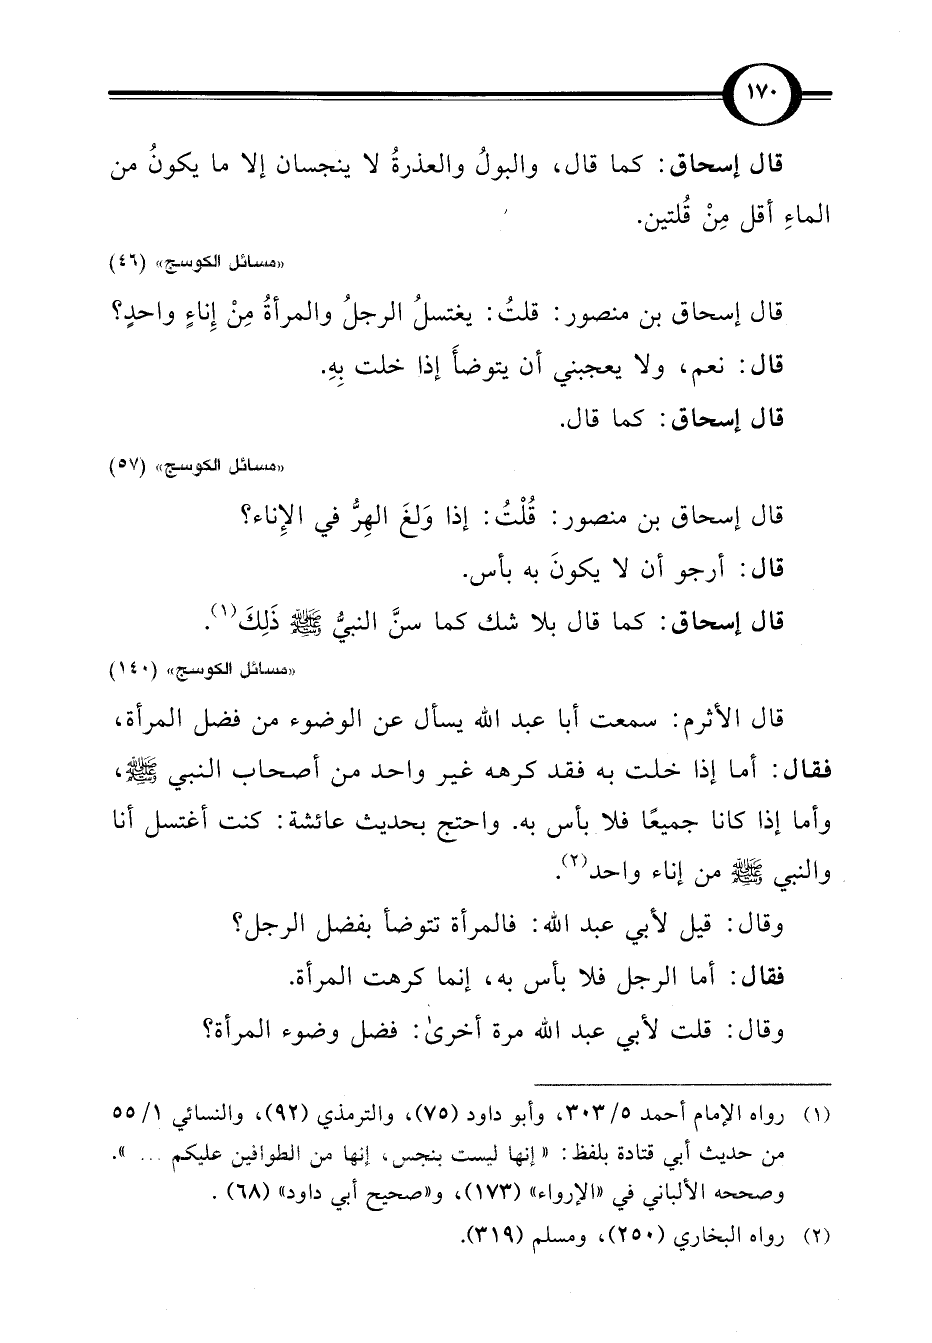 ١٧٠
قال إسحاق: كما قال، والبولُ والعذرةُ لا ينجسان إلا ما يكونُ من
الماءِ أقل مِنْ قُلتين.
«مسائل الكوسج» (٤٦)
قال إسحاق بن منصور: قلتُ: يغتسلُ الرجلُ والمرأةُ مِنْ إناءٍ واحدٍ؟
قال: نعم، ولا يعجبني أن يتوضأَ إذا خلت بِهِ.
قال إسحاق: كما قال.
«مسائل الكوسج» (٥٧)
قال إسحاق بن منصور: قُلْتُ: إذا وَلغَ الهِرُّ في الإِناء؟
قال: أرجو أن لا يكونَ به بأس.
قال إسحاق: كما قال بلا شك كما سنَّ النبيُّ ﷺ ذَلِكَ(١).
«مسائل الكوسج» (١٤٠)
قال الأثرم: سمعت أبا عبد الله يسأل عن الوضوء من فضل المرأة،
فقال: أما إذا خلت به فقد كرهه غير واحد من أصحاب النبي ﷺ،
وأما إذا كانا جميعًا فلا بأس به. واحتج بحديث عائشة: كنت أغتسل أنا
والنبي ﷺ من إناء واحد(٢).
وقال: قيل لأبي عبد الله: فالمرأة تتوضأ بفضل الرجل؟
فقال: أما الرجل فلا بأس به، إنما كرهت المرأة.
وقال: قلت لأبي عبد الله مرة أخرىٰ: فضل وضوء المرأة؟
(١) رواه الإمام أحمد ٥/ ٣٠٣، وأبو داود (٧٥)، والترمذي (٩٢)، والنسائي ١/ ٥٥
من حديث أبي قتادة بلفظ: «إنها ليست بنجس، إنها من الطوافين عليكم ... ».
وصححه الألباني في «الإرواء» (١٧٣)، و«صحيح أبي داود» (٦٨) .
(٢) رواه البخاري (٢٥٠)، ومسلم (٣١٩).